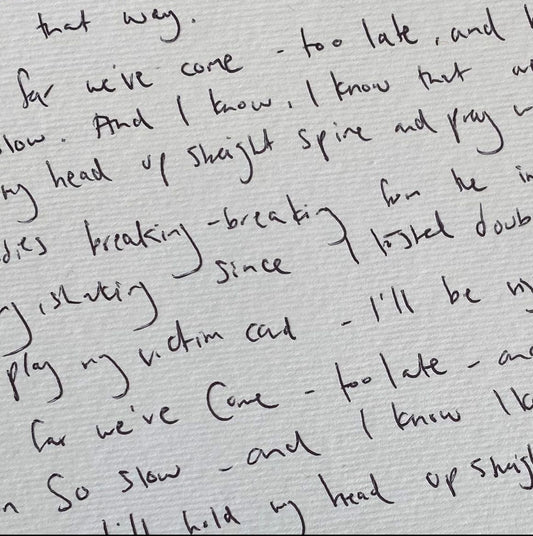 that way.
far we've come - too late, and
slow. And I know, I know that
my head up straight spine and pray
breaking - breaking from the in
shaking since I
play my victim card - I'll be my
far we've Come - too late - and
So slow - and I know I k
I'll hold my head up straig